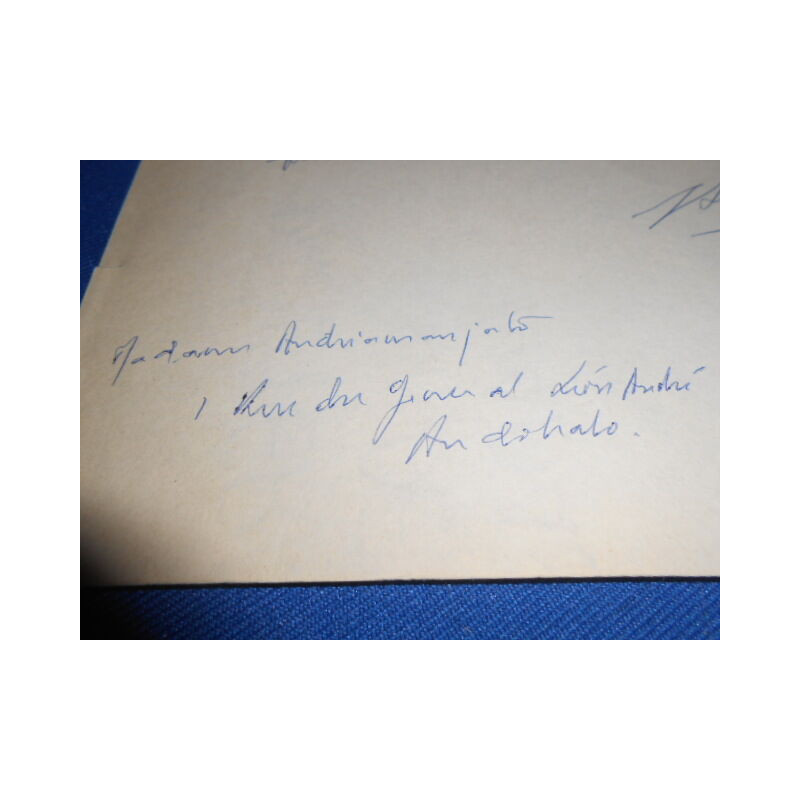 Madame Andriamanjato
1 Rue du Général Léon André
Andohalo.